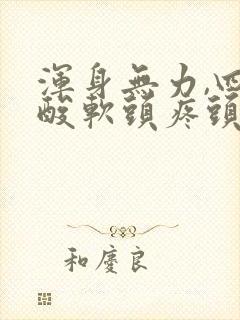 渾身無力,四
酸軟頭疼頭
和慶良